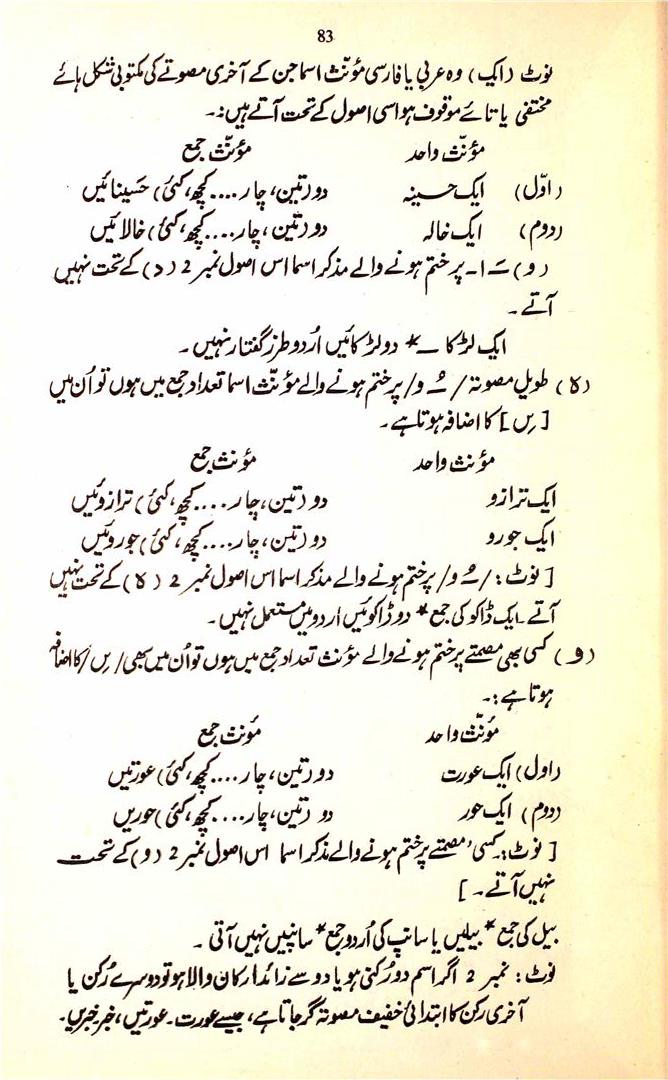 83
نوٹ (ایک) وہ عربی یا فارسی مؤنّث اسما جن کے آخری مصوتے کی مکتوبی شکل ہائے
مختفی یا تائے موقوف ہو اسی اصول کے تحت آتے ہیں :۔
مؤنّث واحد مؤنّث جمع
(اوّل) ایک حسینہ دو (تین، چار .... کچھ، کئی) حَسینائیں
(دوم) ایک خالہ دو (تین، چار .... کچھ، کئی) خالائیں
(و) ـَ ا۔ پر ختم ہونے والے مذکر اسما اس اصول نمبر 2 (د) کے تحت نہیں
آتے ۔
ایک لڑکا ـ * دو لڑکائیں اُردو طرز گفتار نہیں ۔
(ہ) طویل مصوتہ / ـُ و/ پر ختم ہونے والے مؤنّث اسما تعداد جمع میں ہوں تو اُن میں
[ یں ] کا اضافہ ہوتا ہے ۔
مؤنث واحد مؤنث جمع
ایک ترازو دو (تین، چار .... کچھ، کئی) ترازوئیں
ایک جورو دو (تین، چار .... کچھ، کئی) جوروئیں
[ نوٹ : / ـُ و/ پر ختم ہونے والے مذکر اسما اس اصول نمبر 2 (ہ) کے تحت نہیں
آتے ۔ ایک ڈاکو کی جمع * دو ڈاکوئیں اردو میں مستعمل نہیں ۔
(و) کسی بھی مصمتے پر ختم ہونے والے مؤنث تعداد جمع میں ہوں تو اُن میں بھی / یں / کا اضافہ
ہوتا ہے :۔
مؤنّث واحد مؤنث جمع
(اول) ایک عورت دو (تین، چار .... کچھ، کئی) عورتیں
(دوم) ایک حور دو (تین، چار .... کچھ، کئی) حوریں
[ نوٹ :۔ کسی مصمتے پر ختم ہونے والے مذکر اسما اس اصول نمبر 2 (و) کے تحت
نہیں آتے ۔ ]
بیل کی جمع * بیلیں یا سانپ کی اُردو جمع * سانپیں نہیں آتی ۔
نوٹ : نمبر 2 اگر اسم دو رُکنی ہو یا دو سے زائد ارکان والا ہو تو دوسرے رُکن یا
آخری رکن کا ابتدائی خفیف مصوتہ گر جاتا ہے، جیسے عورت ۔ عورتیں، خبر ۔ خبریں ۔